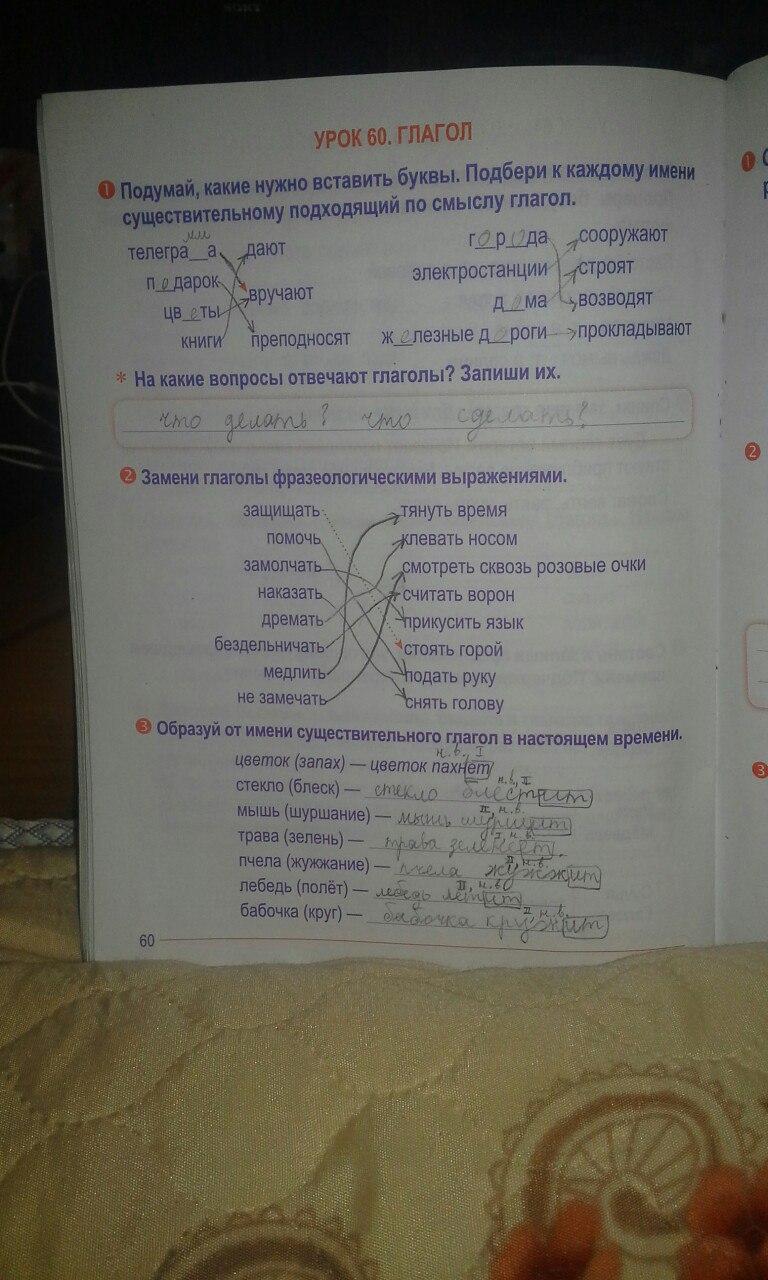 УРОК 60. ГЛАГОЛ
1 Подумай, какие нужно вставить буквы. Подбери к каждому имени
существительному подходящий по смыслу глагол.
телеграмма дают
подарок вручают
цветы
книги преподносят
города сооружают
электростанции строят
дома возводят
железные дороги прокладывают
* На какие вопросы отвечают глаголы? Запиши их.
что делать? что сделать?
2 Замени глаголы фразеологическими выражениями.
защищать тянуть время
помочь клевать носом
замолчать смотреть сквозь розовые очки
наказать считать ворон
дремать прикусить язык
бездельничать стоять горой
медлить подать руку
не замечать снять голову
3 Образуй от имени существительного глагол в настоящем времени.
н.в., I
цветок (запах) — цветок пахнет
н.в., II
стекло (блеск) — стекло блестит
II, н.в.
мышь (шуршание) — мышь шуршит
I, н.в.
трава (зелень) — трава зеленеет.
II, н.в.
пчела (жужжание) — пчела жужжит
II, н.в.
лебедь (полёт) — лебедь летит
II, н.в.
бабочка (круг) — бабочка кружит
60
1
2
3